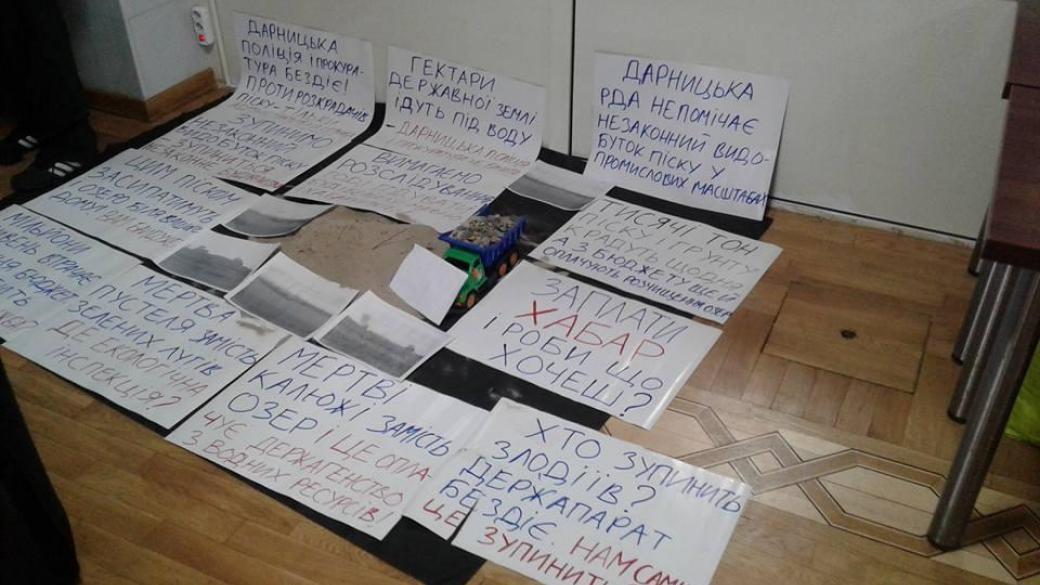 ДАРНИЦЬКА
ПОЛІЦІЯ І ПРОКУРА-
ТУРА БЕЗДІЄ!
ПРОТИ РОЗКРАДАЧІВ
ПІСКУ-
ГЕКТАРИ
ДЕРЖАВНОЇ ЗЕМЛІ
ІДУТЬ ПІД ВОДУ
- ДАРНИЦЬКА
ДАРНИЦЬКА
РДА НЕПОМІЧАЄ
НЕЗАКОННИЙ ВИДО-
БУТОК ПІСКУ У
ПРОМИСЛОВИХ МАСШТАБАХ
ЗУПИНІМО
НЕЗАКОННИЙ
ВИДОБУТОК ПІСКУ
ВИМАГАЄМО
РОЗСЛІДУВАННЯ
ЦИМ ПІСКОМ
ЗАСИПАТИМУТЬ
ОЗЕРО БІЛЯ
ДОМУ!
ТИСЯЧІ ТОН
ПІСКУ І ГРУНТУ
КРАДУТЬ ЩОДНЯ
А З БЮДЖЕТУ ЩЕ Й
ОПЛАЧУЮТЬ РОЗЧИЩЕННЯ ОЗЕР
МІЛЬЙОНИ
ВТРАЧАЄ
БЮДЖЕТ
МЕРТВА
ПУСТЕЛЯ ЗАМІСТЬ
ЗЕЛЕНИХ ЛУГІВ
ДЕ ЕКОЛОГІЧНА
ІНСПЕКЦІЯ?
ЗАПЛАТИ
ХАБАР
І РОБИ ЩО
ХОЧЕШ?
МЕРТВІ
КАЛЮЖІ ЗАМІСТЬ
ОЗЕР І ЩЕ ОПЛА
ЧУЄ ДЕРЖАГЕНСТВО
З ВОДНИХ РЕСУРСІВ!
ХТО ЗУПИНИТЬ
ЗЛОДІЇВ?
ДЕРЖАПАРАТ
БЕЗДІЄ. НАМ САМИМ
ЦЕ ЗУПИНИТИ